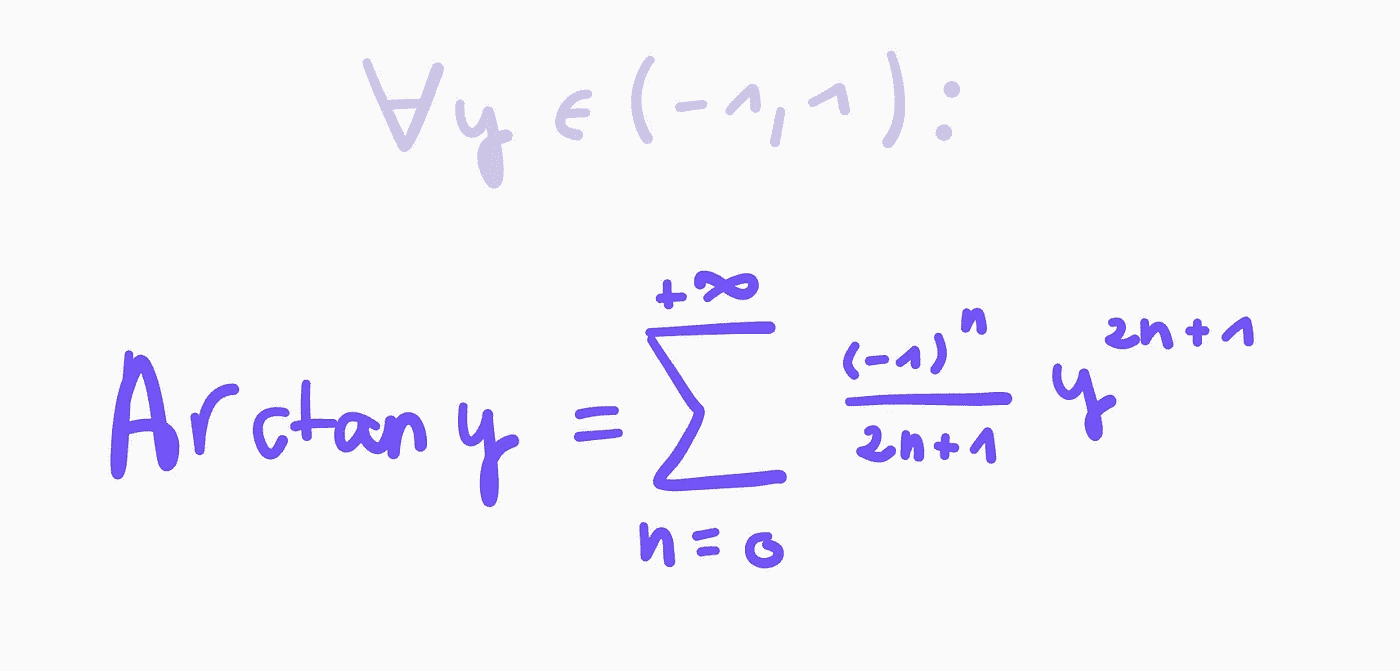 ∀y ∈ (-1,1):
Arctan y = \sum_{n=0}^{+∞} \frac{(-1)^n}{2n+1} y^{2n+1}